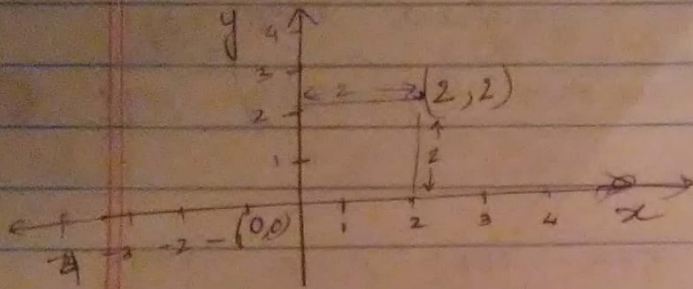 y
4
3
2 (2,2)
2
2
1
-3 -2 - (0,0) 1 2 3 4 x